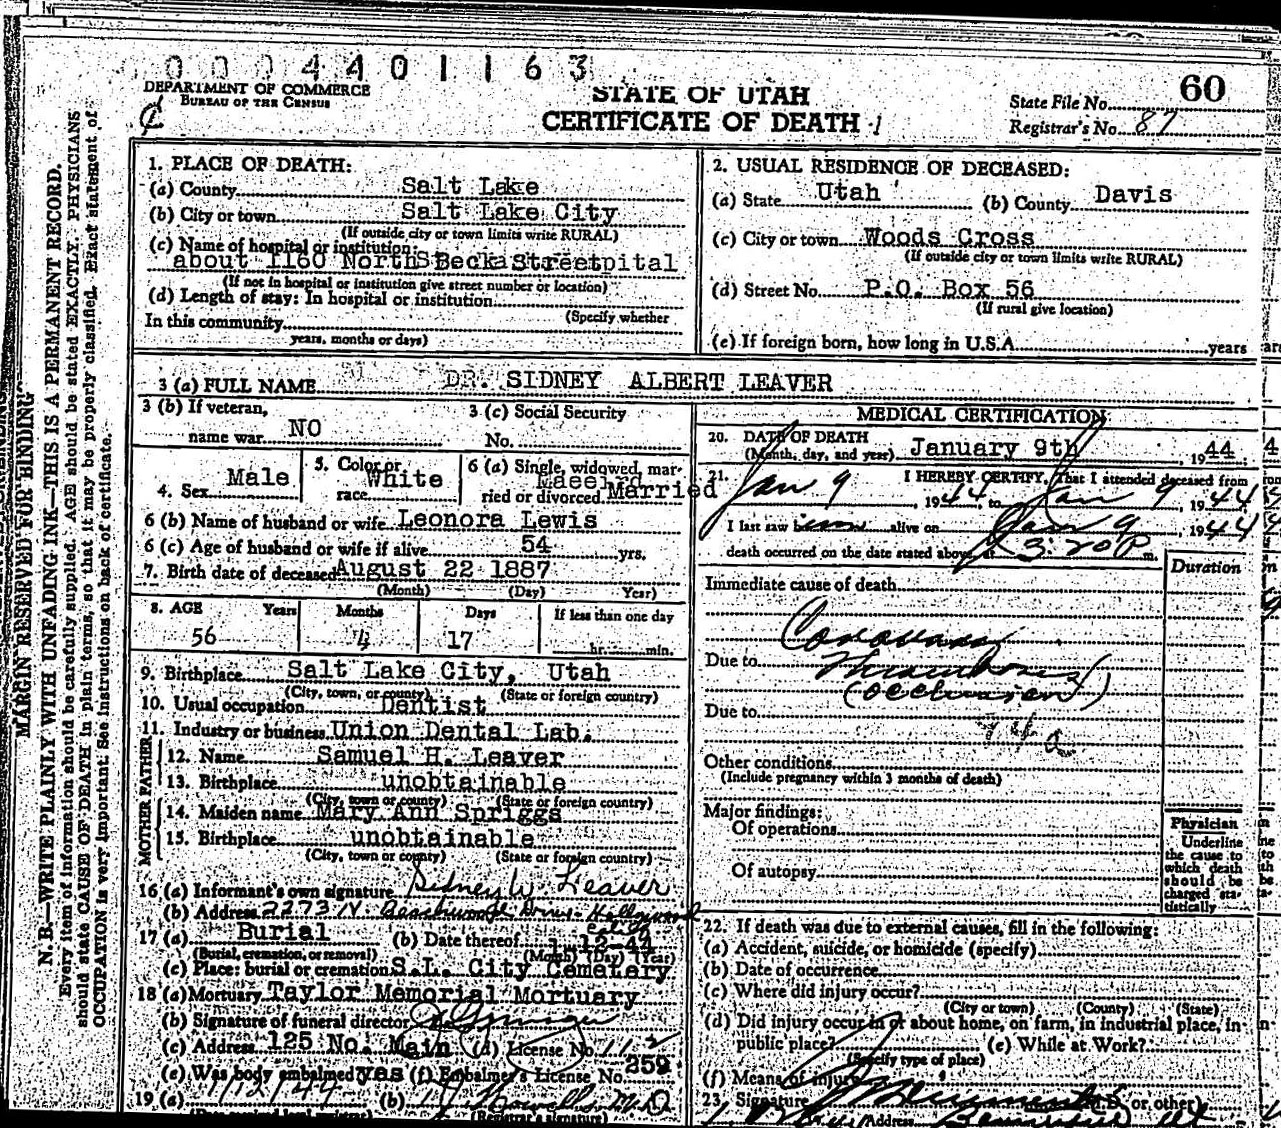 0 0 0 4 4 0 1 1 6 3
DEPARTMENT OF COMMERCE
BUREAU OF THE CENSUS
STATE OF UTAH
CERTIFICATE OF DEATH
State File No. 60
Registrar's No. 87
MARGIN RESERVED FOR BINDING
N. B.—WRITE PLAINLY WITH UNFADING INK—THIS IS A PERMANENT RECORD.
Every item of information should be carefully supplied. AGE should be stated EXACTLY. PHYSICIANS
should state CAUSE OF DEATH in plain terms, so that it may be properly classified. Exact statement of
OCCUPATION is very important. See instructions on back of certificate.
1. PLACE OF DEATH:
(a) County Salt Lake
(b) City or town Salt Lake City
(If outside city or town limits write RURAL)
(c) Name of hospital or institution:
about 1160 North Beck Street
(If not in hospital or institution give street number or location)
(d) Length of stay: In hospital or institution
(Specify whether
In this community
years, months or days)
2. USUAL RESIDENCE OF DECEASED:
(a) State Utah (b) County Davis
(c) City or town Woods Cross
(If outside city or town limits write RURAL)
(d) Street No. P.O. Box 56
(If rural give location)
(e) If foreign born, how long in U.S.A. years
3 (a) FULL NAME DR. SIDNEY ALBERT LEAVER
3 (b) If veteran,
name war NO
3 (c) Social Security
No.
4. Sex Male
5. Color or
race White
6 (a) Single, widowed, mar-
ried or divorced Married
6 (b) Name of husband or wife Leonora Lewis
6 (c) Age of husband or wife if alive 54 yrs.
7. Birth date of deceased August 22 1887
(Month) (Day) Year)
8. AGE Years Months Days If less than one day
56 4 17 hr. min.
9. Birthplace Salt Lake City, Utah
(City, town, or county) (State or foreign country)
10. Usual occupation Dentist
11. Industry or business Union Dental Lab.
FATHER
12. Name Samuel H. Leaver
13. Birthplace unobtainable
(City, town or county) (State or foreign country)
MOTHER
14. Maiden name Mary Ann Spriggs
15. Birthplace unobtainable
(City, town or county) (State or foreign country)
16 (a) Informant's own signature Sidney W. Leaver
(b) Address 2273 N. Beachwood Drive - Hollywood
Calif
17 (a) Burial (b) Date thereof 1-12-44
(Burial, cremation, or removal) (Month) (Day) (Year)
(c) Place: burial or cremation S.L. City Cemetery
18 (a) Mortuary Taylor Memorial Mortuary
(b) Signature of funeral director
(c) Address 125 No. Main (d) License No. 112
(e) Was body embalmed yes (f) Embalmer's License No. 259
19 (a) 1/12/44 (b) M.D.
(Registrar's signature)
MEDICAL CERTIFICATION
20. DATE OF DEATH
(Month, day, and year) January 9th, 1944
21. I HEREBY CERTIFY, That I attended deceased from
Jan 9, 1944, to Jan 9, 1944
I last saw him alive on Jan 9, 1944
death occurred on the date stated above, at 3:20 P m.
Duration
Immediate cause of death
Coronary
Due to Thrombosis
(occlusion)
Due to
94a
Other conditions
(Include pregnancy within 3 months of death)
Major findings:
Of operations
Of autopsy
Physician
Underline
the cause to
which death
should be
charged sta-
tistically
22. If death was due to external causes, fill in the following:
(a) Accident, suicide, or homicide (specify)
(b) Date of occurrence
(c) Where did injury occur?
(City or town) (County) (State)
(d) Did injury occur in or about home, on farm, in industrial place, in
public place? (e) While at Work?
(Specify type of place)
(f) Means of injury
23. Signature (M.D. or other)
Address